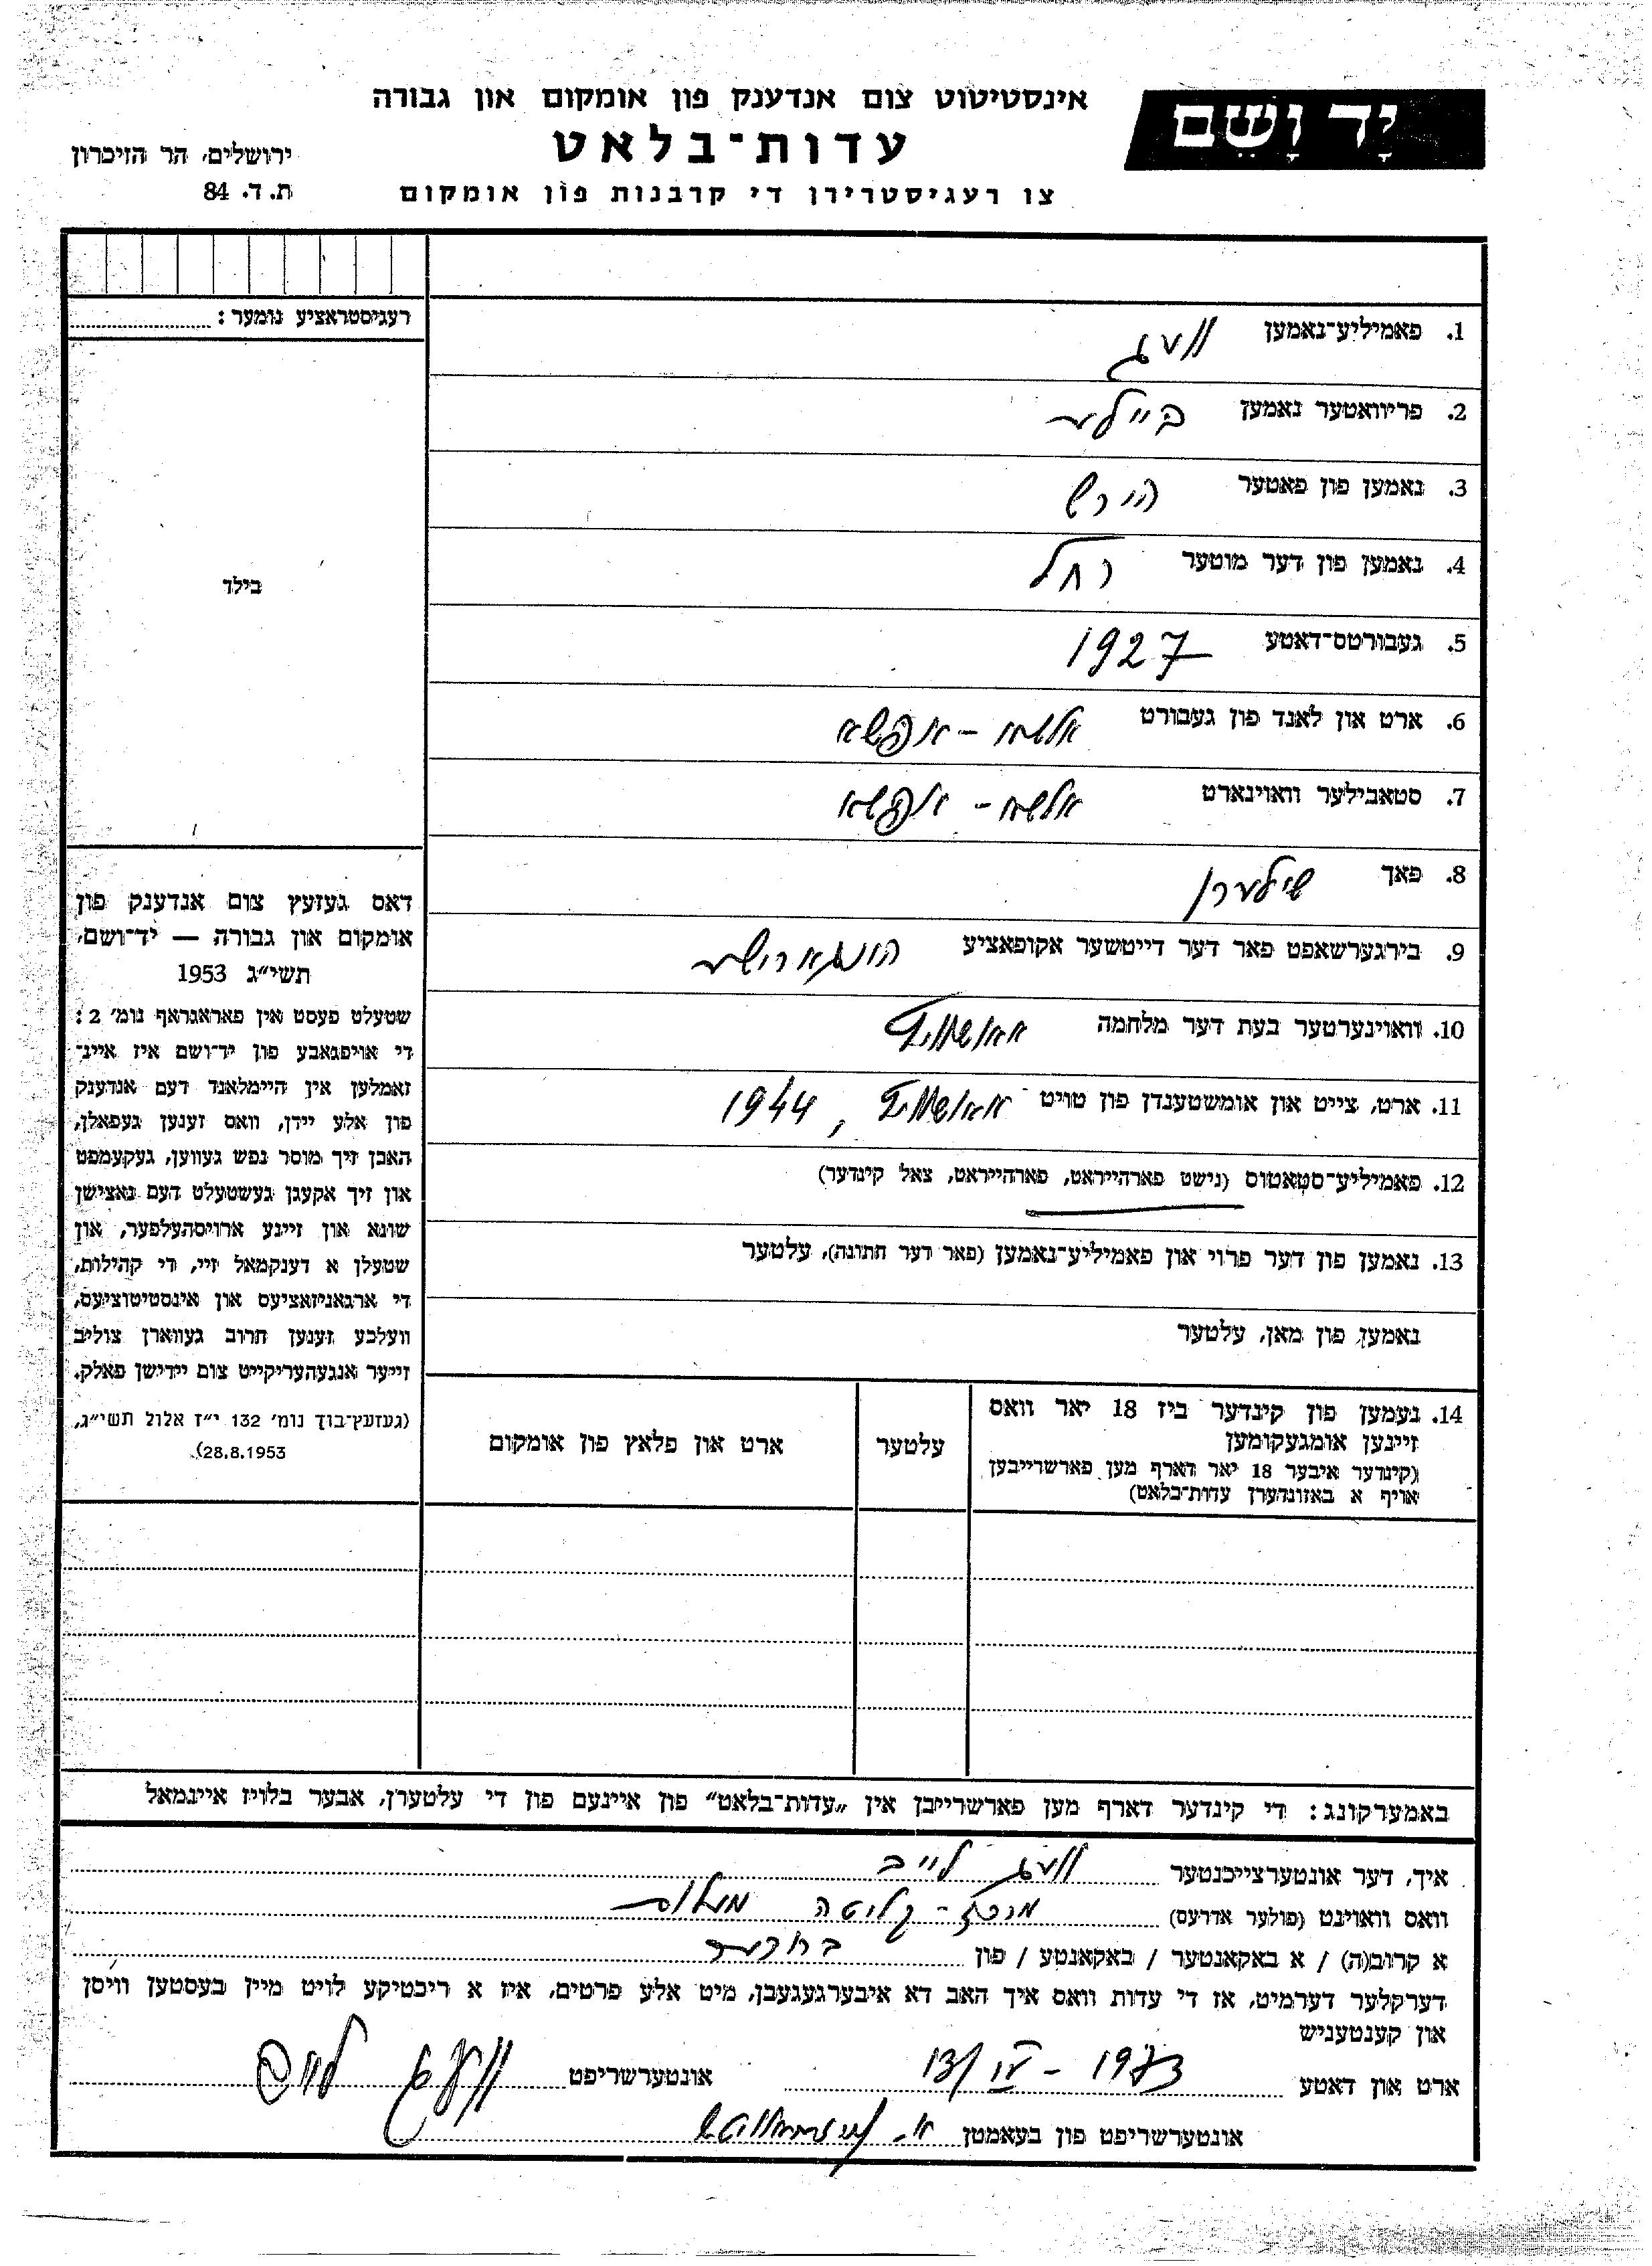 יָד וָשֵׁם
אינסטיטוט צום אנדענק פון אומקום און גבורה
עדות־בלאט
צו רעגיסטרירן די קרבנות פון אומקום
ירושלים, הר הזיכרון
ת. ד. 84
רעגיסטראציע נומער :
בילד
דאס געזעץ צום אנדענק פון
אומקום און גבורה — יד־ושם,
תשי״ג 1953
שטעלט פעסט אין פאראגראף נומ׳ 2 :
די אויפגאבע פון יד־ושם איז איינ־
זאמלען אין היימלאנד דעם אנדענק
פון אלע יידן, וואס זענען געפאלן,
האבן זיך מוסר נפש געווען, געקעמפט
און זיך אקעגן געשטעלט דעם נאצישן
שונא און זיינע ארויסהעלפער, און
שטעלן א דענקמאל זיי, די קהילות,
די ארגאניזאציעס און אינסטיטוציעס,
וועלכע זענען חרוב געווארן צוליב
זייער אנגעהעריקייט צום יידישן פאלק.
(געזעץ־בוך נומ׳ 132 י״ז אלול תשי״ג,
28.8.1953).
1. פאמיליע־נאמען וועג
2. פריוואטער נאמען ביילע
3. נאמען פון פאטער הירש
4. נאמען פון דער מוטער רחל
5. געבורטס־דאטע 1927
6. ארט און לאנד פון געבורט
7. סטאבילער וואוינארט
8. פאך שילערן
9. בירגערשאפט פאר דער דייטשער אקופאציע הונגארישע
10. וואוינערטער בעת דער מלחמה אאושוויץ
11. ארט, צייט און אומשטענדן פון טויט אאושוויץ, 1944
12. פאמיליע־סטאטוס (נישט פארהייראט, פארהייראט, צאל קינדער)
13. נאמען פון דער פרוי און פאמיליע־נאמען (פאר דער חתונה), עלטער
נאמען פון מאן, עלטער
14. נעמען פון קינדער ביז 18 יאר וואס
זיינען אומגעקומען
(קינדער איבער 18 יאר דארף מען פארשרייבן
אויף א באזונדערן עדות־בלאט)
עלטער
ארט און פלאץ פון אומקום
באמערקונג : די קינדער דארף מען פארשרייבן אין „עדות־בלאט” פון איינעם פון די עלטערן, אבער בלויז איינמאל
איך, דער אונטערצייכנטער וועג לייב
וואס וואוינט (פולער אדרעס) מרכז־קליטה
א קרוב(ה) / א באקאנטער / באקאנטע / פון ברודער
דערקלער דערמיט, אז די עדות וואס איך האב דא איבערגעגעבן, מיט אלע פרטים, איז א ריכטיקע לויט מיין בעסטען וויסן
און קענטעניש
ארט און דאטע 13/IV - 1973 אונטערשריפט וועג לייב
אונטערשריפט פון בעאמטן